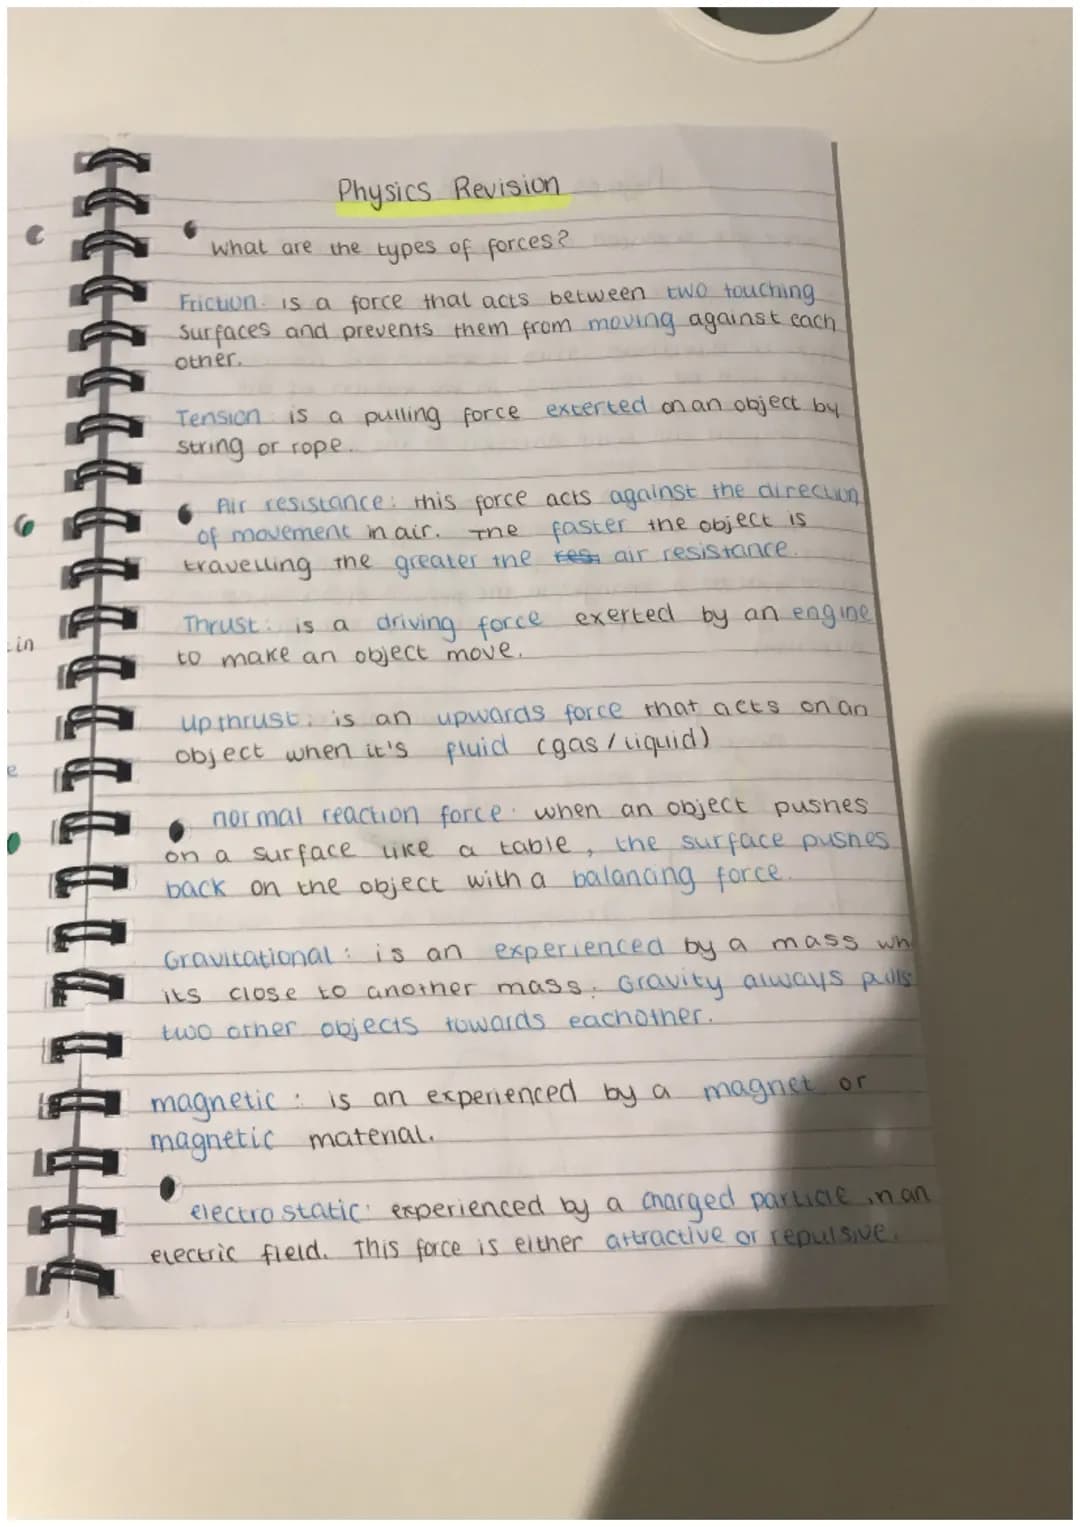 Physics Revision
what are the types of forces?
Friction. is a force that acts between two touching
surfaces and prevents them from moving against each
other.
Tension is a pulling force exterted on an object by
string or rope.
Air resistance: this force acts against the direction
of movement in air. The faster the object is
travelling the greater the res air resistance.
Thrust: is a driving force exerted by an engine
to make an object move.
upthrust: is an upwards force that acts on an
object when it's fluid (gas/liquid)
normal reaction force: when an object pushes
on a surface like a table, the surface pushes
back on the object with a balancing force.
Gravitational: is an experienced by a mass wh
its close to another mass. Gravity always pulls
two other objects towards eachother.
magnetic: is an experienced by a magnet or
magnetic material.
electrostatic: experienced by a charged particle in an
electric field. This force is either attractive or repulsive.
in
e